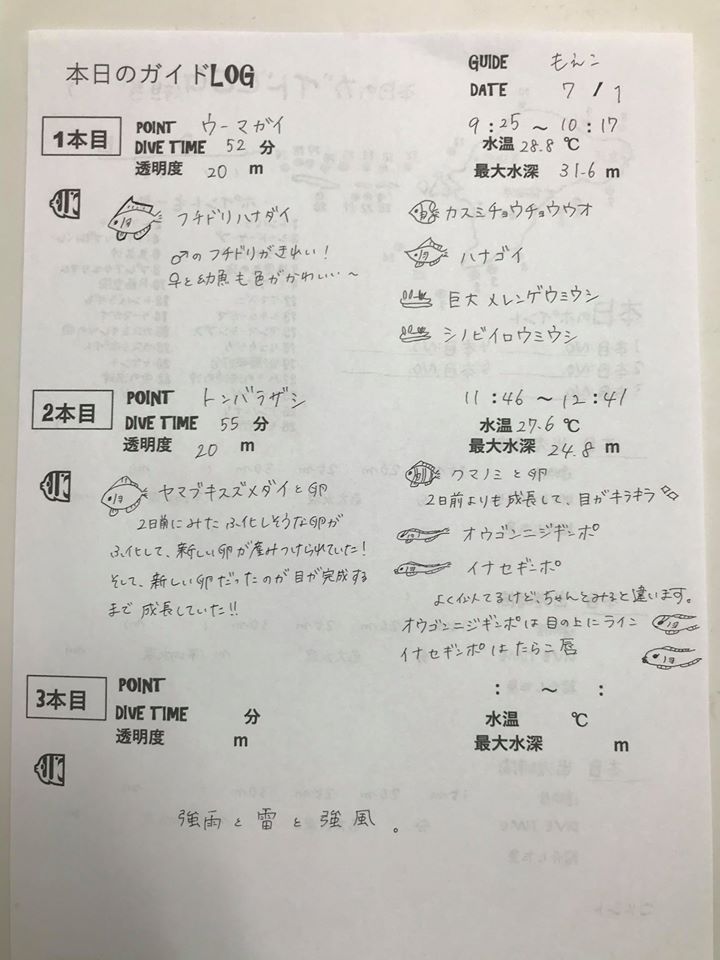 本日のガイドLOG
GUIDE もえこ
DATE 7 / 1
1本目
POINT ウーマガイ
DIVE TIME 52 分
透明度 20 m
9:25 ~ 10:17
水温 28.8 ℃
最大水深 31.6 m
フチドリハナダイ
♂のフチドリがきれい!
♀と幼魚も色がかわいい~
カスミチョウチョウウオ
ハナゴイ
巨大メレンゲウミウシ
シノビイロウミウシ
2本目
POINT トンバラザシ
DIVE TIME 55 分
透明度 20 m
11:46 ~ 12:41
水温 27.6 ℃
最大水深 24.8 m
ヤマブキスズメダイと卵
2日前にみたふ化しそうな卵が
ふ化して、新しい卵が産みつけられていた!
そして、新しい卵だったのが目が完成する
まで成長していた!!
クマノミと卵
2日前よりも成長して、目がキラキラ
オウゴンニジギンポ
イナセギンポ
よく似てるけど、ちゃんとみると違います。
オウゴンニジギンポは目の上にライン
イナセギンポはたらこ唇
3本目
POINT
DIVE TIME 分
透明度 m
: ~ :
水温 ℃
最大水深 m
強雨と雷と強風。